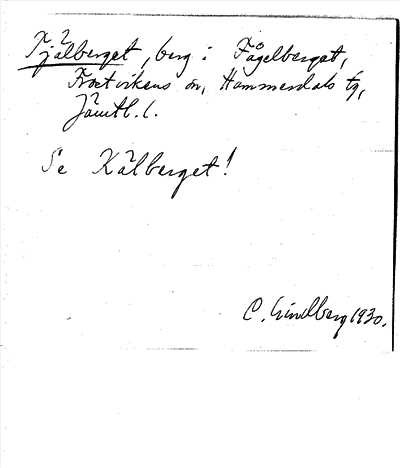 Fjälberget, berg i Fågelberget,
Frostvikens sn, Hammerdals tg,
Jämtl. l.
Se Kälberget!
C. Lindberg 1930.